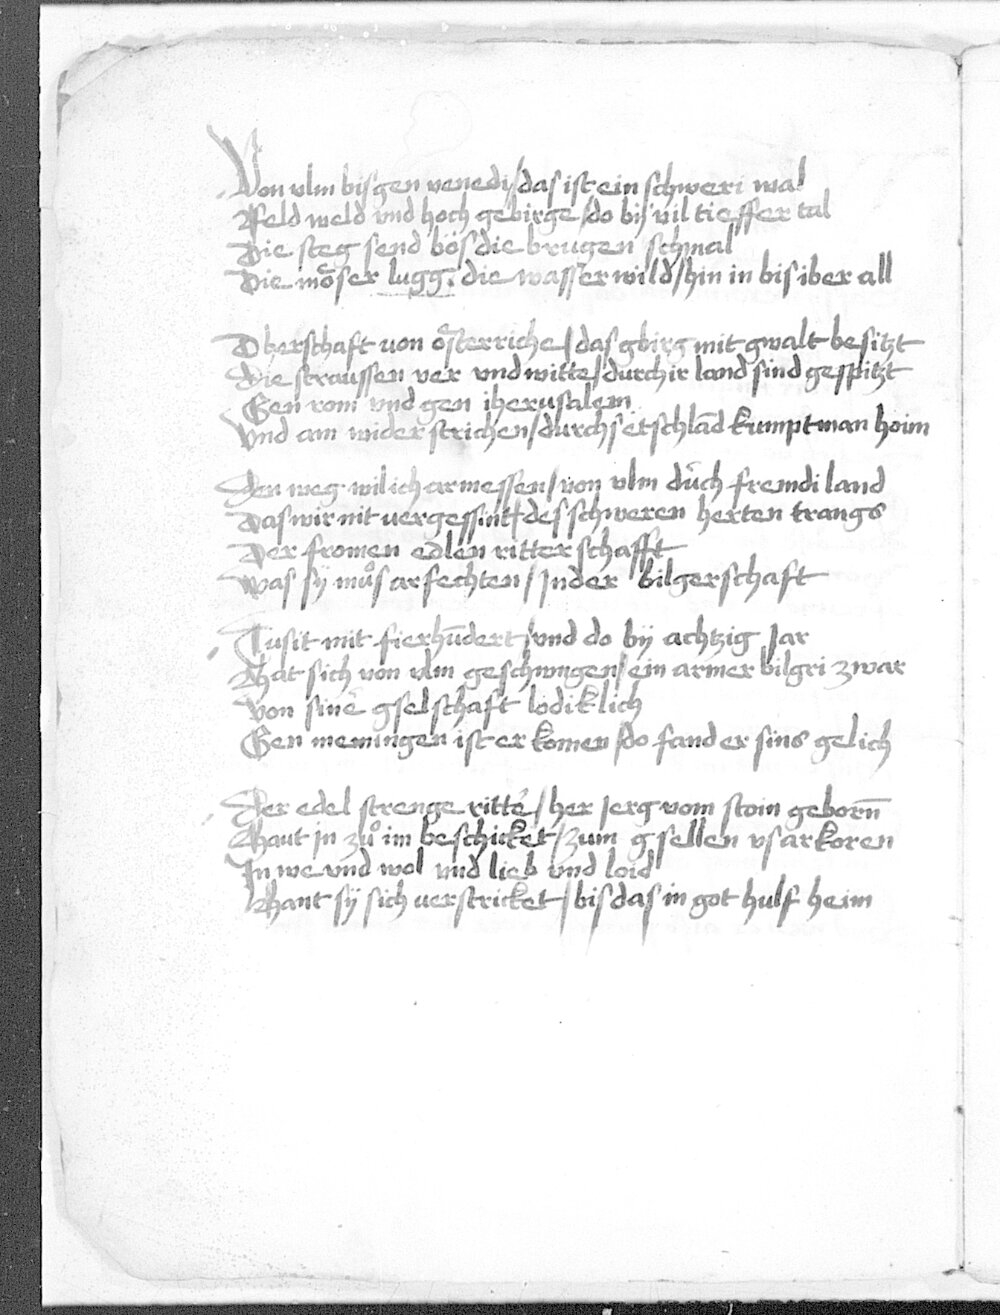 Von vlm bis gen venedi / das ist ein schweri wal
Feld weld vnd hoch gebirge / do bÿ vil tieffer tal
Die steg send bös die brugen schmal
Die möser lugg. die wasser wild / hin in bis iber all
Oberschaft von österriche / das gbirg mit gwalt besitzt
Die straussen ver vnd witte / durch ir land sind gespitzt
Gen rom vnd gen iherusalem
Vnd am wider strichen / durchs etschlād kumpt man hoim
Den weg wil ich armessen / von vlm durch fremdi land
Das wir nit vergessint / des schweren herten trangs
Der fromen edlen ritterschafft
Was sÿ můs arfechten / Jn der bilgerschaft
Tusit mit fierhūdert / vnd do bÿ achtzig Jar
Hat sich von vlm geschwngen / ein armer bilgri zwar
Von sinē gselschaft lediklich
Gen memingen ist er komen / do fand er sins gelich
Der edel strenge rittē / her Jerg vom stoin geborn̄
Haut jn zů im beschicket / zum gsellen vsarkoren
In we vnd wol vnd lieb vnd loid
Hant sÿ sich verstricket / bis das in got hulf heim